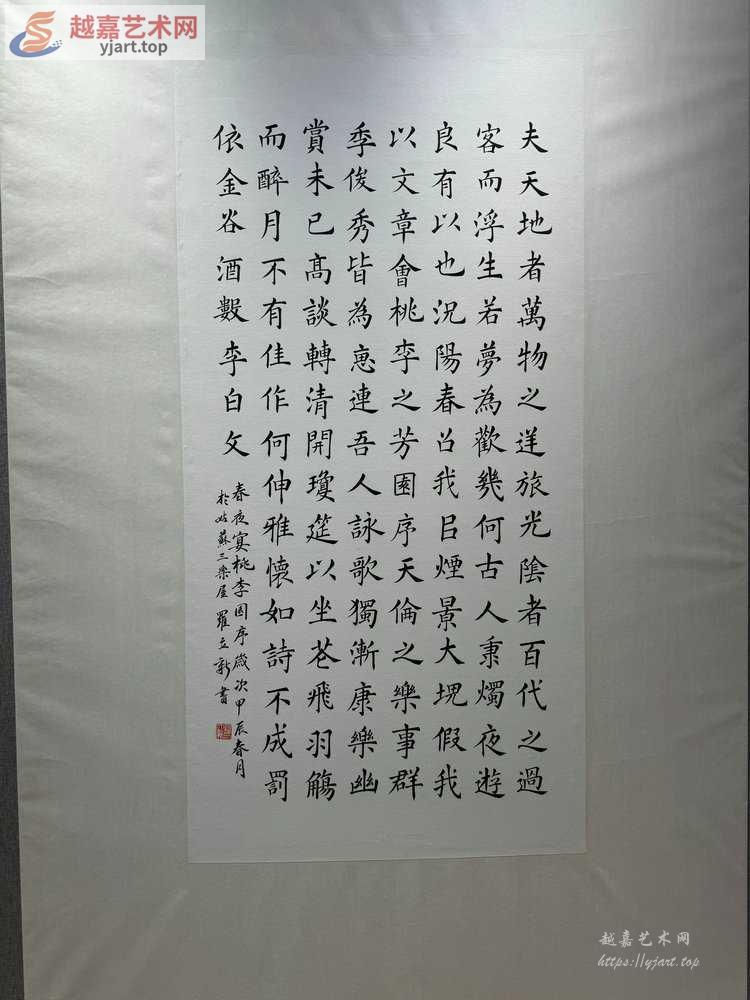 越嘉艺术网
yjart.top
夫天地者萬物之逆旅光陰者百代之過
客而浮生若夢為歡幾何古人秉燭夜遊
良有以也況陽春召我以煙景大塊假我
以文章會桃李之芳園序天倫之樂事群
季俊秀皆為惠連吾人詠歌獨漸康樂幽
賞未已高談轉清開瓊筵以坐花飛羽觴
而醉月不有佳作何伸雅懷如詩不成罰
依金谷酒數李白文
春夜宴桃李園序歲次甲辰春月
於姑蘇三樂屋羅立新書
越嘉艺术网
https://yjart.top